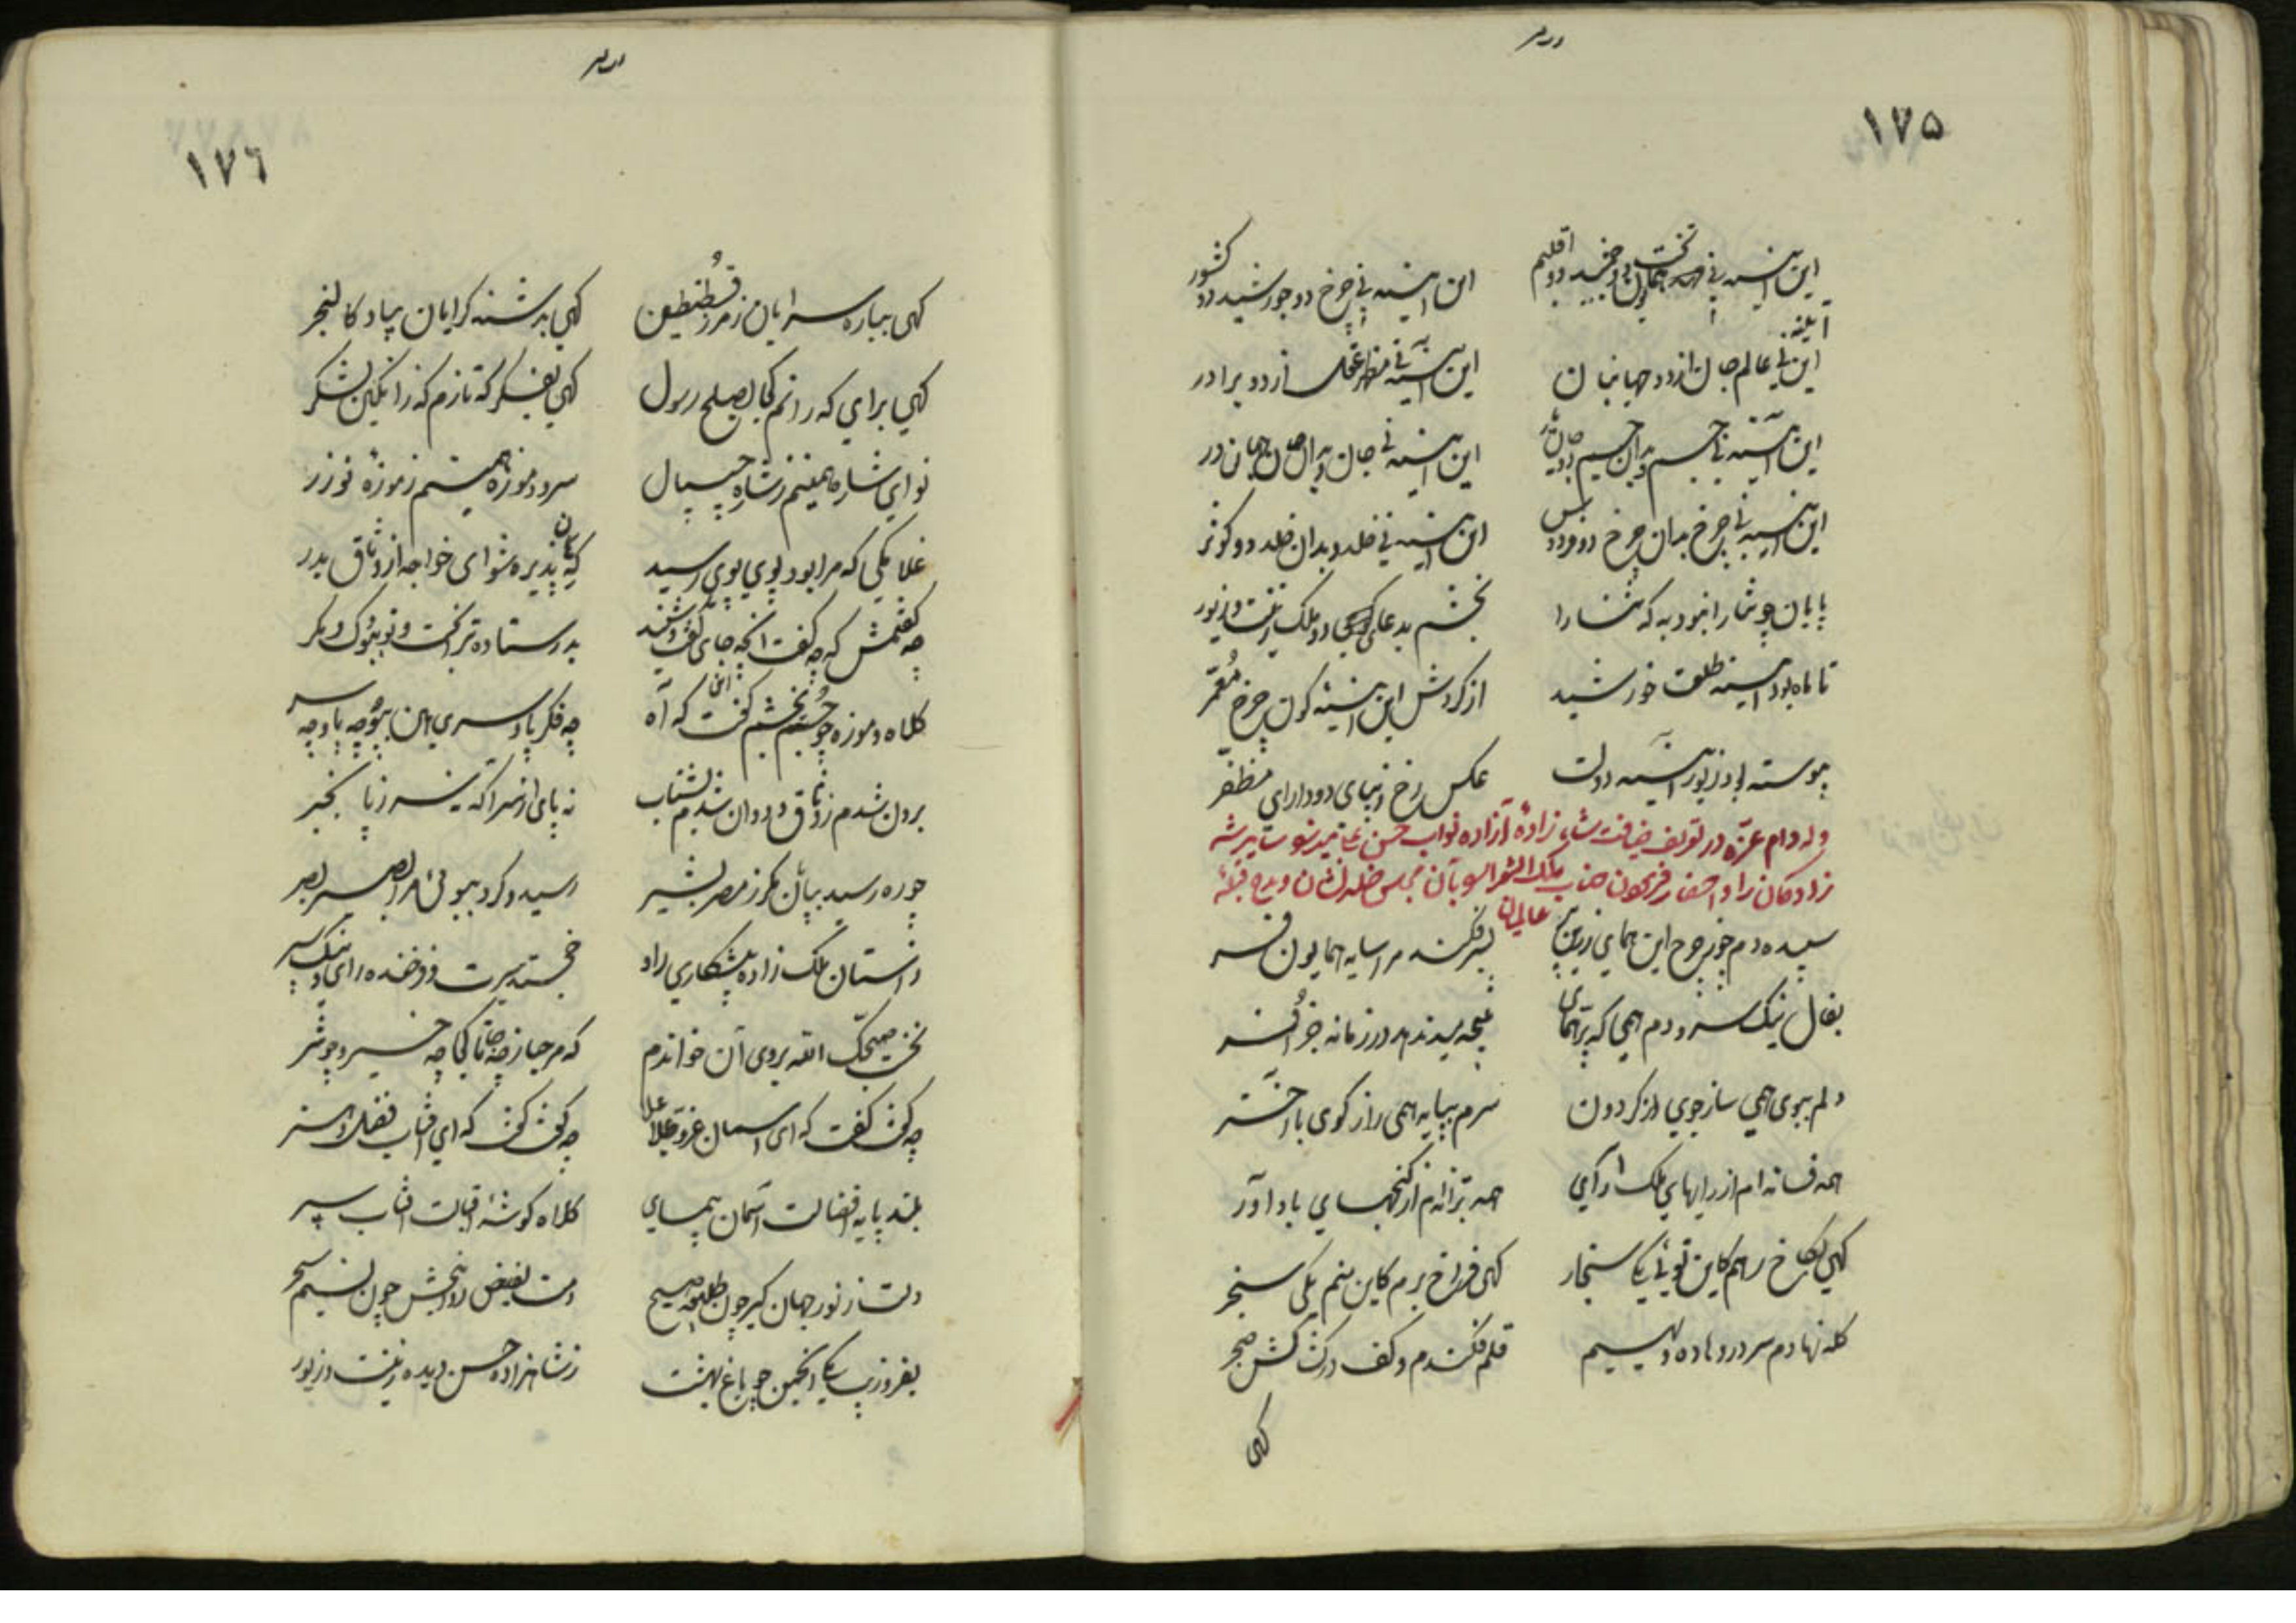 ١٧٥
این آینه نی تخت همایون و دو اقلیم
این آینه نی چرخ دو خورشید دو کشور
آینه
این نی عالم جان از دو جهانبان
این آینه نی مظهر عقل از دو برادر
این آینه نی جسم بدان جسم دو
این آینه نی جان و بدان جهان در
این آینه نی چرخ بدان چرخ دو
این آینه نی خلد و بدان خلد دو کوثر
پایان چو ثنا را نبود به که ثنا را
بخشم بدعا دو ملک زینت و زیور
تا ماه بود آینه طلعت خورشید
از گردش این آینه گون چرخ مُعمّر
پیوسته بود زیور آیینه دولت
عکس رخ زیبای دو دارای مظفّر
وله دام عزّه در تعریف ضیافت شاه زادهٔ آزاده نواب حسن علی میرزا و سایر شه
زادگان راد و احضار فرمودن جناب ملک الشعرا بآن مجلس و مدح قبلهٔ
عالمیان
سپیده دم چو چرخ این همای زرین پر
بسر فکند مرا سایه همایون فر
بفال نیک سرودم همی که همای
نتیجه ندهد در زمانه جز
دلم ببوی همی ساز جوی از گردون
سرم بپایه همی راز گوی با اختر
همه فسانه ام از رایهای ملک آرای
همه ترانه ام از گنجهای باد آور
گهی بکاخ برم کاین توئی یکی سنجار
گهی فراخ برم کاین منم یکی سنجر
کله نهادم سر در و ماده دیهیم
قلم فکندم و کف در
گهی
١٧٦
گهی بباره سرایان ز مرز قُسطنطین
گهی بدشنه گرایان بیاد کالنجر
گهی برای که رانم کجا بصلح رسول
گهی بفکر که تازم که را بکین لشکر
نوای شاره همیتم ز شاره چیپال
سرود موزه همیتم ز موزهٔ نوذر
غلامکی که مرا بود پوی پوی رسید
که هان پذیره شو ای خواجه از وثاق بدر
چه گفتمش که چه گفت آنچه جای گفت و شنید
بدر ستاده ترا بخت و تو ببوک و مگر
کلاه و موزه چو جُستم بخشم گفت که آه
چه فکر پا و سری هان بپو چه پا و چه سر
برون شدم ز وثاق و دوان شدم بشتاب
نه پای از سر آگه نه سر ز پا بخبر
چو ره رسید بپایان مگر ز مصر بشیر
رسید و کرد ببوئی مرا بصیر بصر
در آستان ملک زاده پیشکاری راد
خجسته سیرت و فرخنده رای و نیک سیر
نخست صبّحک الله بروی آن خواندم
که مرحبا ز چه تا کجا چه خیر و چه شر
چه گفت گفت که ای آسمان عزّ و علا
چه گفت گفت که ای آفتاب فضل و هنر
بلند پایه افضالت آسمان پیمای
کلاه گوشهٔ اقبالت آفتاب سپر
دلت ز نور جهان گیر چون طلیعه صبح
دمت بفیض روانبخش چون نسیم سحر
بفروزیب یکی انجمن چو باغ بهشت
ز شاهزاده حسن دیده زینت و زیور